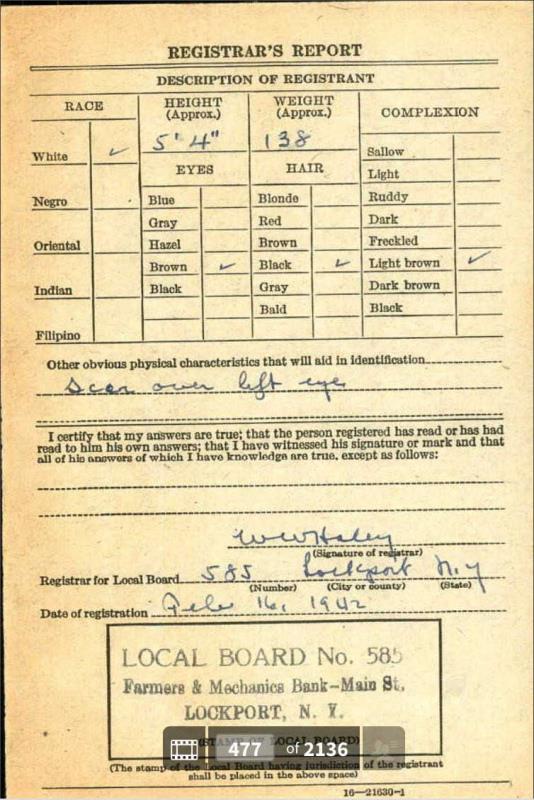 REGISTRAR'S REPORT
DESCRIPTION OF REGISTRANT
RACE
HEIGHT
(Approx.)
WEIGHT
(Approx.)
COMPLEXION
5' 4"
138
White ✓
Negro
Oriental
Indian
Filipino
EYES
Blue
Gray
Hazel
Brown ✓
Black
HAIR
Blonde
Red
Brown
Black ✓
Gray
Bald
Sallow
Light
Ruddy
Dark
Freckled
Light brown ✓
Dark brown
Black
Other obvious physical characteristics that will aid in identification
Scar over left eye
I certify that my answers are true; that the person registered has read or has had
read to him his own answers; that I have witnessed his signature or mark and that
all of his answers of which I have knowledge are true, except as follows:
W W Haley
(Signature of registrar)
Registrar for Local Board 585 Lockport N.Y
(Number) (City or county) (State)
Date of registration Feb 16, 1942
LOCAL BOARD No. 585
Farmers & Mechanics Bank-Main St.
LOCKPORT, N. Y.
(STAMP OF LOCAL BOARD)
477 of 2136
(The stamp of the Local Board having jurisdiction of the registrant
shall be placed in the above space)
16—21630-1